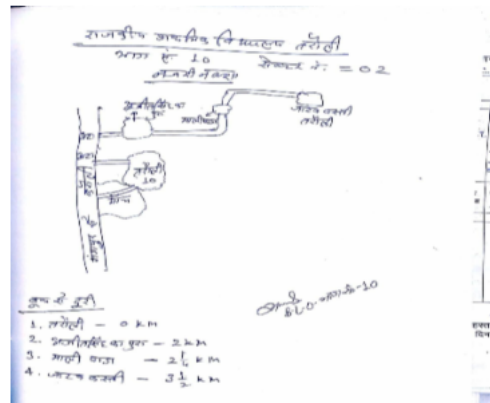 राजकीय माध्यमिक विद्यालय तरौली
भाग सं 10
सेक्टर नं. = 02
नजरी नक्शा
अजीतसिंह का पुरा
माली पाडा
जाटव बस्ती
तरौली
तरौली
10
बूथ से दूरी
1. तरौली - 0 KM
2. अजीतसिंह का पुरा - 2 KM
3. माली पाडा - 2 1/4 KM
4. जाटव बस्ती - 3 1/2 KM
BLO भाग सं-10